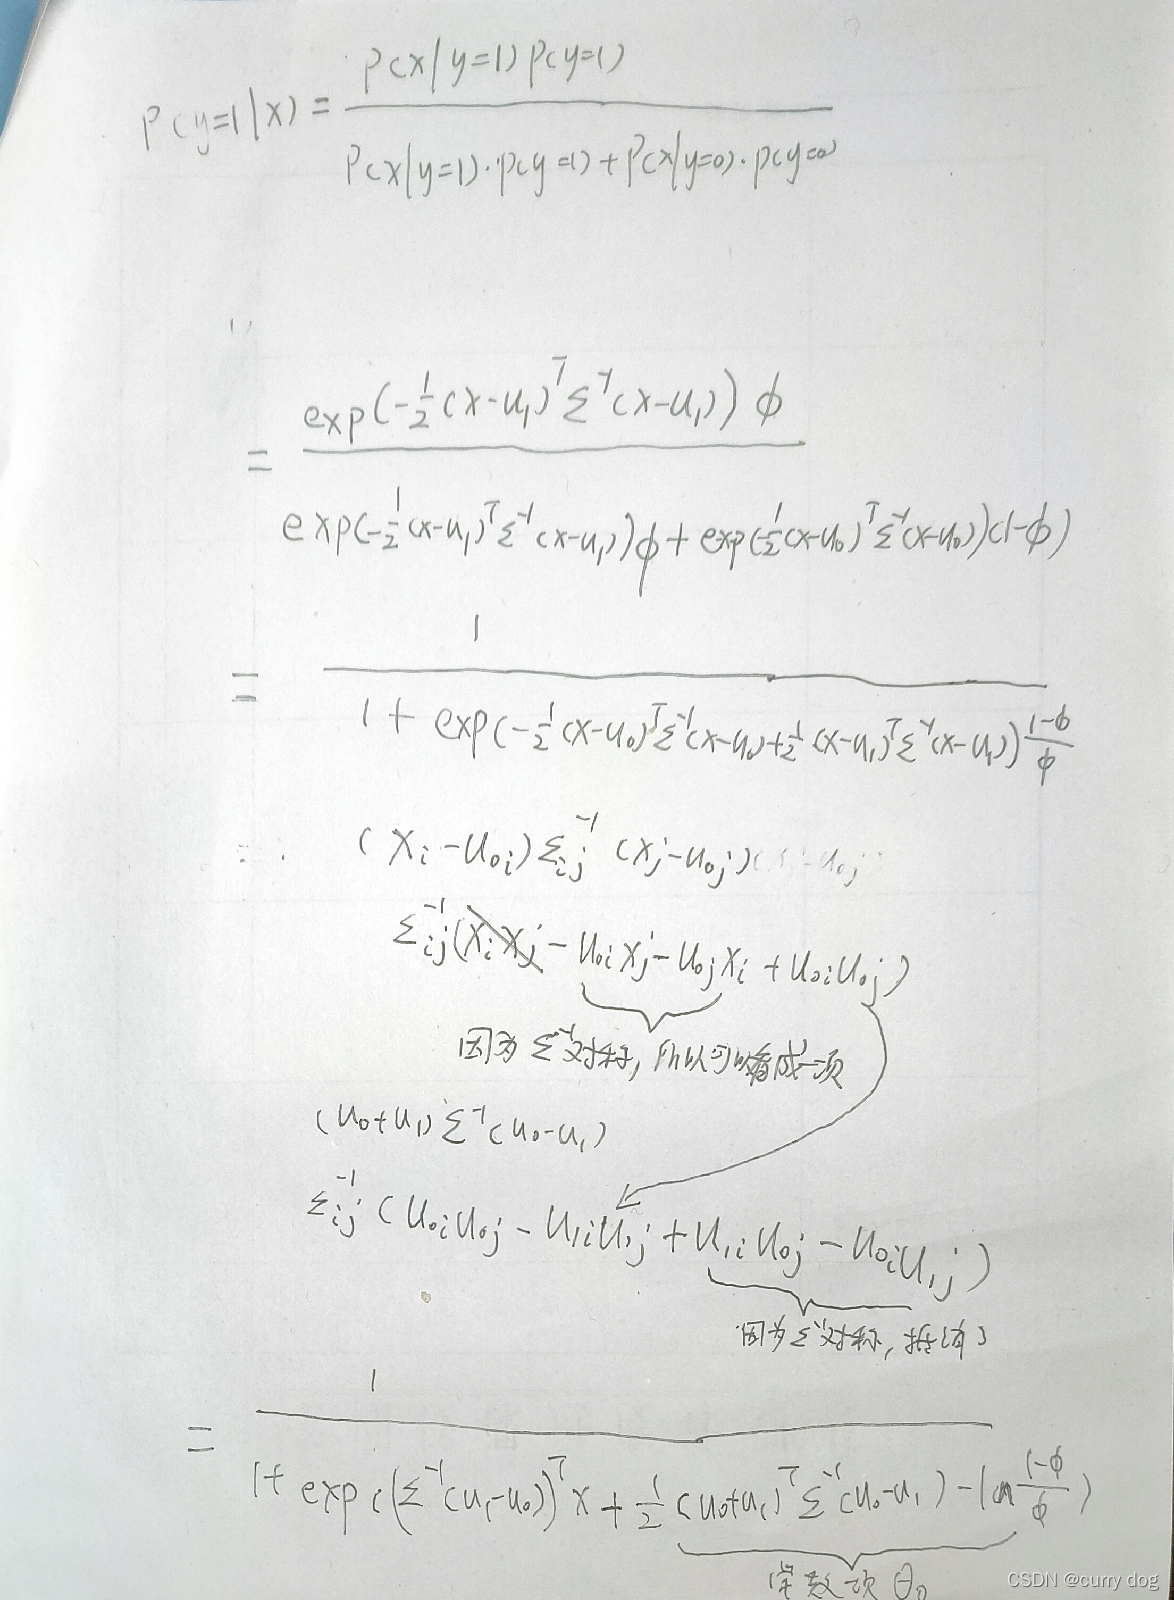 P(y=1|x) = P(x|y=1) P(y=1) / P(x|y=1)·P(y=1) + P(x|y=0)·P(y=0)
= exp(-1/2 (x-u₁)ᵀ Σ⁻¹ (x-u₁)) ϕ / exp(-1/2 (x-u₁)ᵀ Σ⁻¹ (x-u₁)) ϕ + exp(-1/2 (x-u₀)ᵀ Σ⁻¹ (x-u₀)) (1-ϕ)
= 1 / 1 + exp(-1/2 (x-u₀)ᵀ Σ⁻¹ (x-u₀) + 1/2 (x-u₁)ᵀ Σ⁻¹ (x-u₁)) (1-ϕ)/ϕ
(x_i - u_0i) Σ_ij⁻¹ (x_j - u_0j)
Σ_ij⁻¹ (x_i x_j - u_0i x_j - u_0j x_i + u_0i u_0j)
因为 Σ⁻¹对称, 所以可以看成一项
(u₀+u₁) Σ⁻¹ (u₀-u₁)
Σ_ij⁻¹ (u_0i u_0j - u_1i u_1j + u_1i u_0j - u_0i u_1j)
因为 Σ⁻¹对称, 抵消了
= 1 / 1 + exp((Σ⁻¹(u₁-u₀))ᵀ x + 1/2 (u₀+u₁)ᵀ Σ⁻¹ (u₀-u₁) - ln (1-ϕ)/ϕ)
常数项 θ₀
CSDN @curry dog